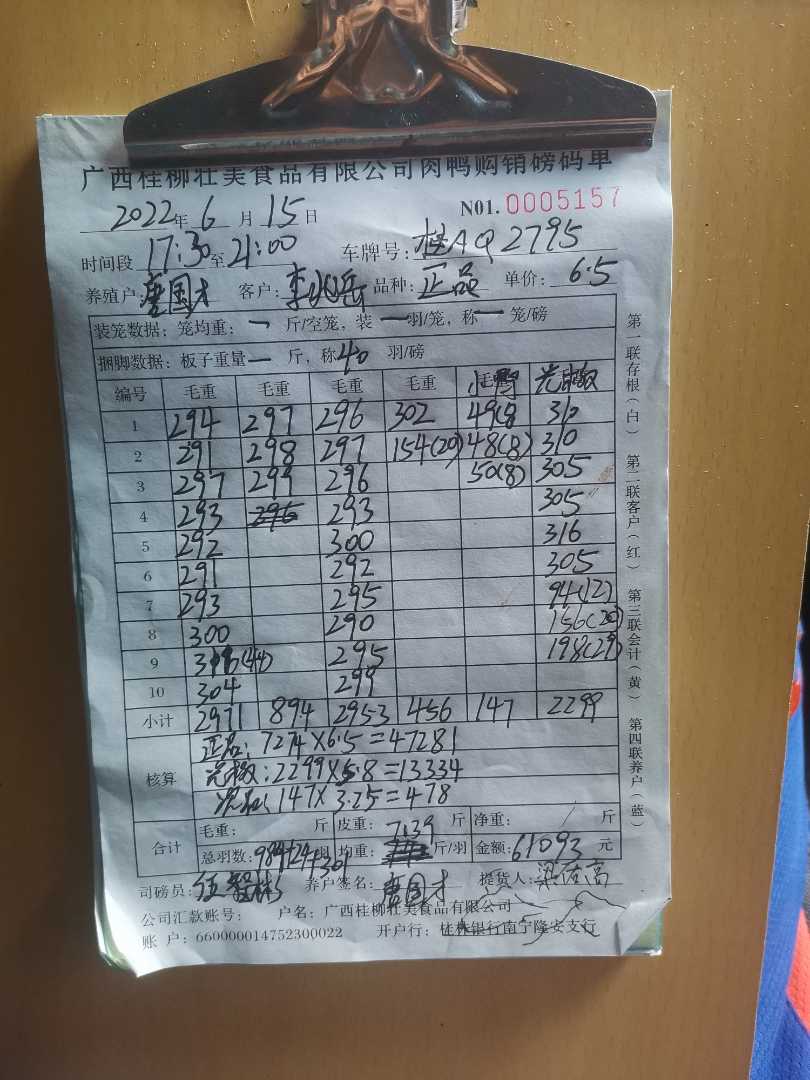 广西桂柳壮美食品有限公司肉鸭购销磅码单
2022年6月15日 N01.0005157
时间段17:30至21:00 车牌号:桂AQ2795
养殖户:唐国才 客户:李兆岳 品种:正品 单价:6.5
装笼数据:笼均重:一斤/空笼,装一羽/笼,称一笼/磅
捆脚数据:板子重量一斤,称40羽/磅
编号 毛重 毛重 毛重 毛重
1 294 297 296 302 49(8 310
2 291 298 297 154(20) 48(8) 310
3 297 299 296 50(8) 305
4 293 296 293 305
5 292 300 316
6 291 292 305
7 293 295 94(12)
8 300 290 156(20)
9 (44) 295 198(29)
10 304 299
小计 2971 894 2953 456 147 2299
核算
正品:7274×6.5=47281
:2299×5.8=13334
147×3.25=478
合计
毛重: 斤 皮重: 斤 净重: 斤
总羽数:984+24+301羽 均重:7.39斤/羽 金额:61093元
司磅员: 养户签名:唐国才 提货人:
公司汇款账号: 户名:广西桂柳壮美食品有限公司
账户:660000014752300022 开户行:桂林银行南宁隆安支行
第一联存根(白) 第二联客户(红) 第三联会计(黄) 第四联养户(蓝)